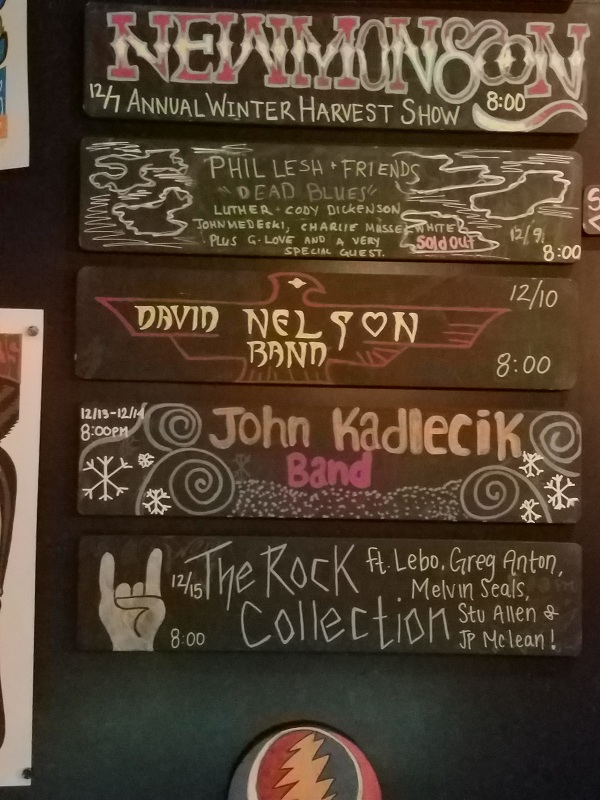 NEW MONSOON
12/7 ANNUAL WINTER HARVEST SHOW 8:00
PHIL LESH + FRIENDS
"DEAD BLUES"
LUTHER + CODY DICKENSON
JOHN MEDESKI, CHARLIE MUSSELWHITE
PLUS G-LOVE AND A VERY
SPECIAL GUEST.
Sold Out
12/9
8:00
DAVID NELSON
BAND
12/10
8:00
12/13-12/14
8:00PM
John Kadlecik
Band
12/15
8:00
The Rock
Collection
ft. Lebo, Greg Anton,
Melvin Seals,
Stu Allen &
JP Mclean!